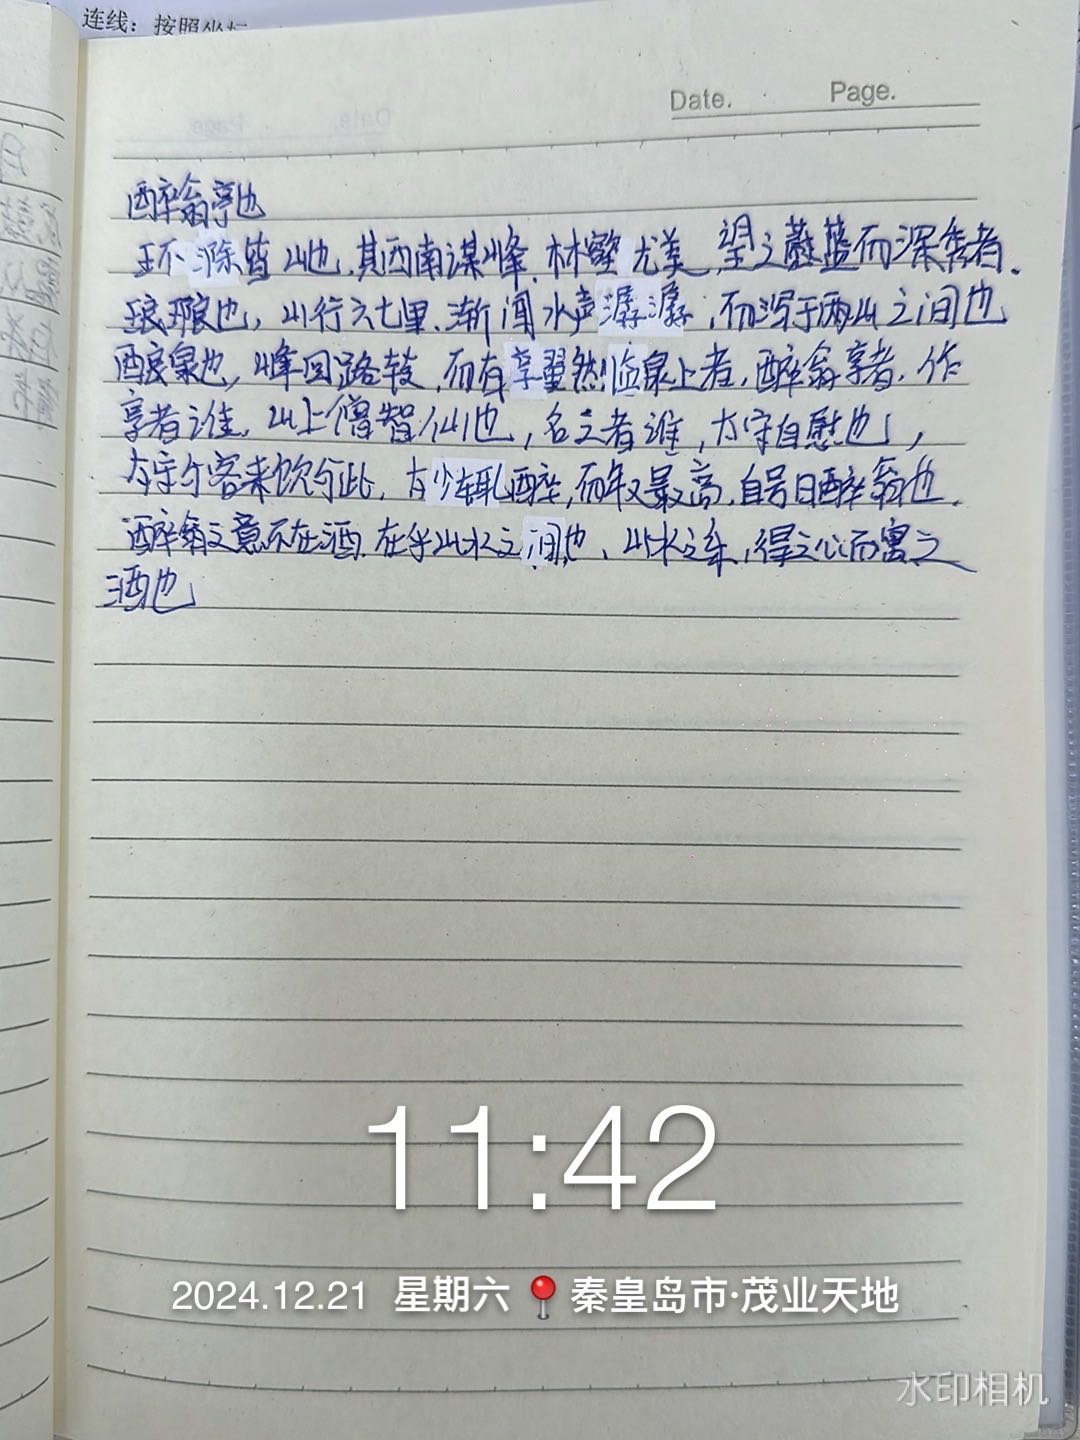 连线：按照坐标
Date. Page.
醉翁亭也
环滁皆山也.其西南谋峰.林壑尤美,望之蔚蓝而深秀者.
琅琊也,山行六七里.渐闻水声潺潺,而泻于两山之间也
酿泉也,峰回路转,而有享翼然临泉上者,醉翁享者.作
享者谁.山上僧智仙也,名之者谁,太守自慰也,
太守与客来饮于此.方少辄醉,而年又最高.自号曰醉翁也.
醉翁之意不在酒.在乎山水之间也、山水之乐,得之心而寓之
酒也
11:42
2024.12.21 星期六 秦皇岛市·茂业天地
水印相机